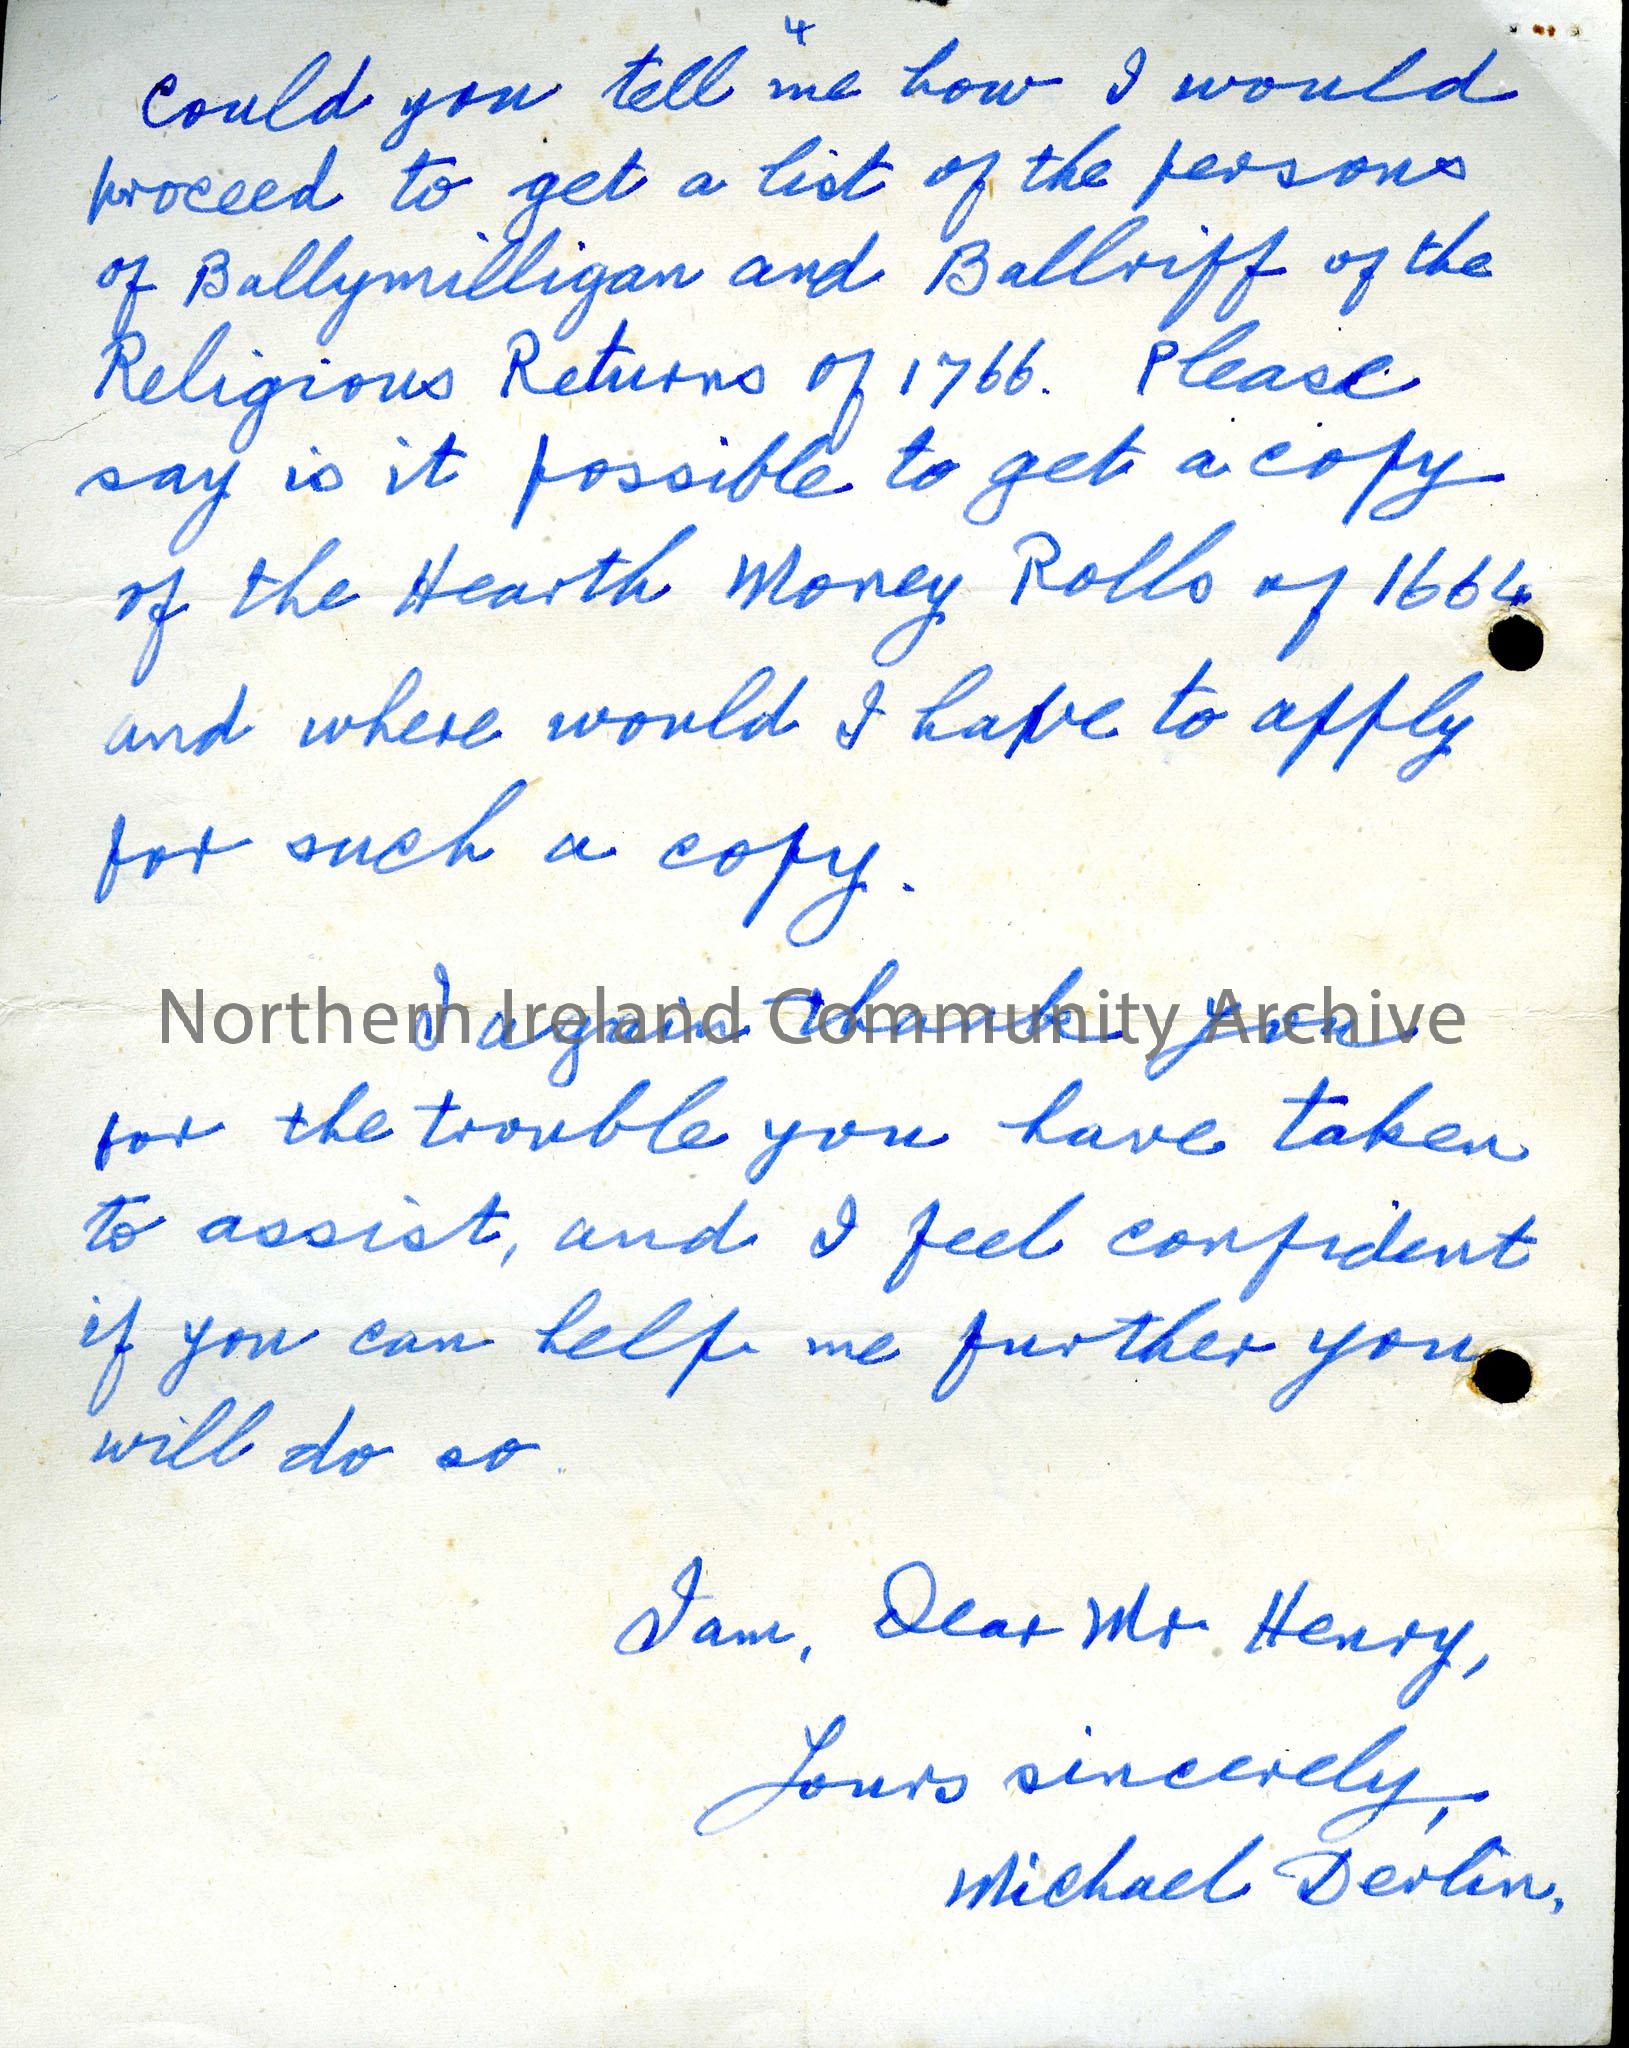 4
Could you tell me how I would
proceed to get a list of the persons
of Ballymilligan and Ballriff of the
Religious Returns of 1766. Please
say is it possible to get a copy
of the Hearth Money Rolls of 1664
and where would I have to apply
for such a copy.
I again thank you
Northern Ireland Community Archive
for the trouble you have taken
to assist, and I feel confident
if you can help me further you
will do so.
I am, Dear Mr Henry,
Yours sincerely,
Michael Devlin.